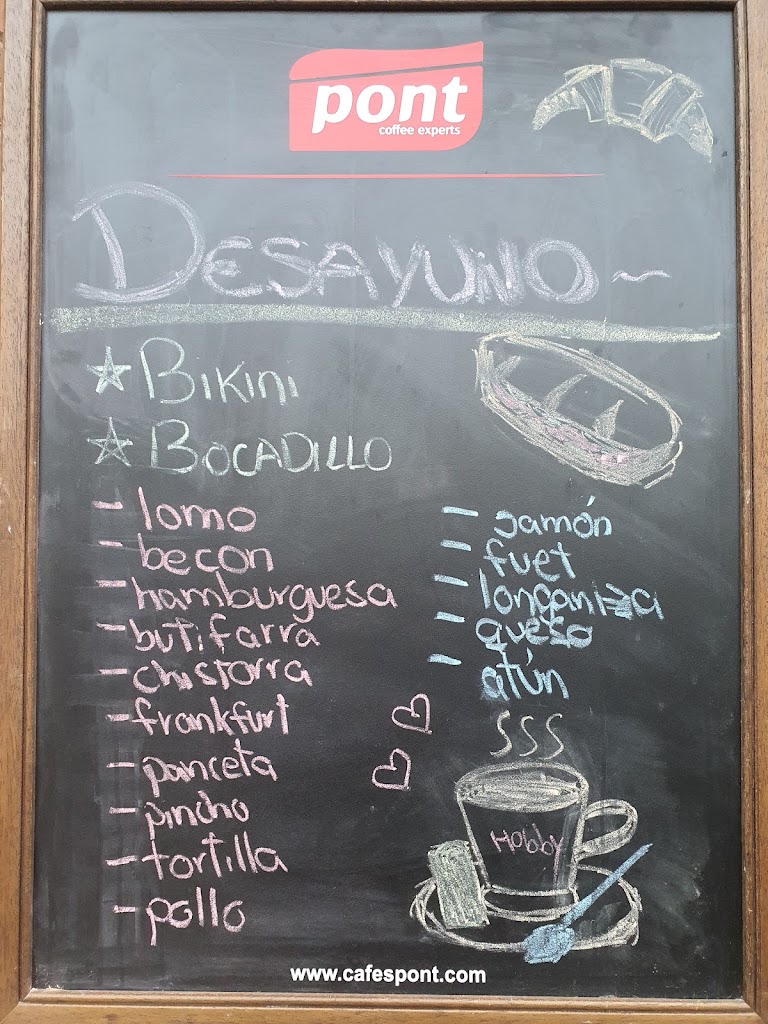 pont
coffee experts
DESAYUNO ~
☆ BIKINI
☆ BOCADILLO
- lomo
- becon
- hamburguesa
- butifarra
- chistorra
- frankfurt
- panceta
- pincho
- tortilla
- pollo
- jamón
- fuet
- longaniza
- queso
- atún
SSS
Hobby
www.cafespont.com